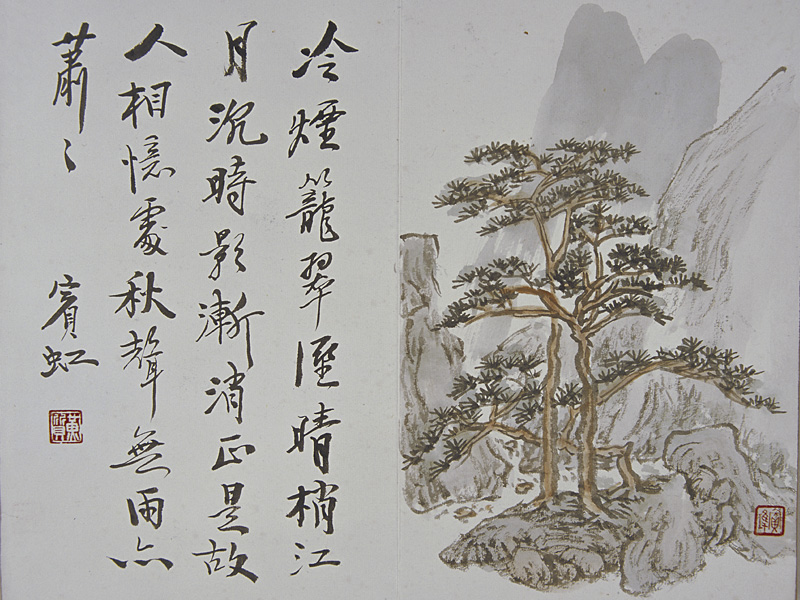 冷煙籠翠壓晴梢江
月沉時影漸消正是故
人相憶處秋聲無雨亦
蕭〻
賓虹